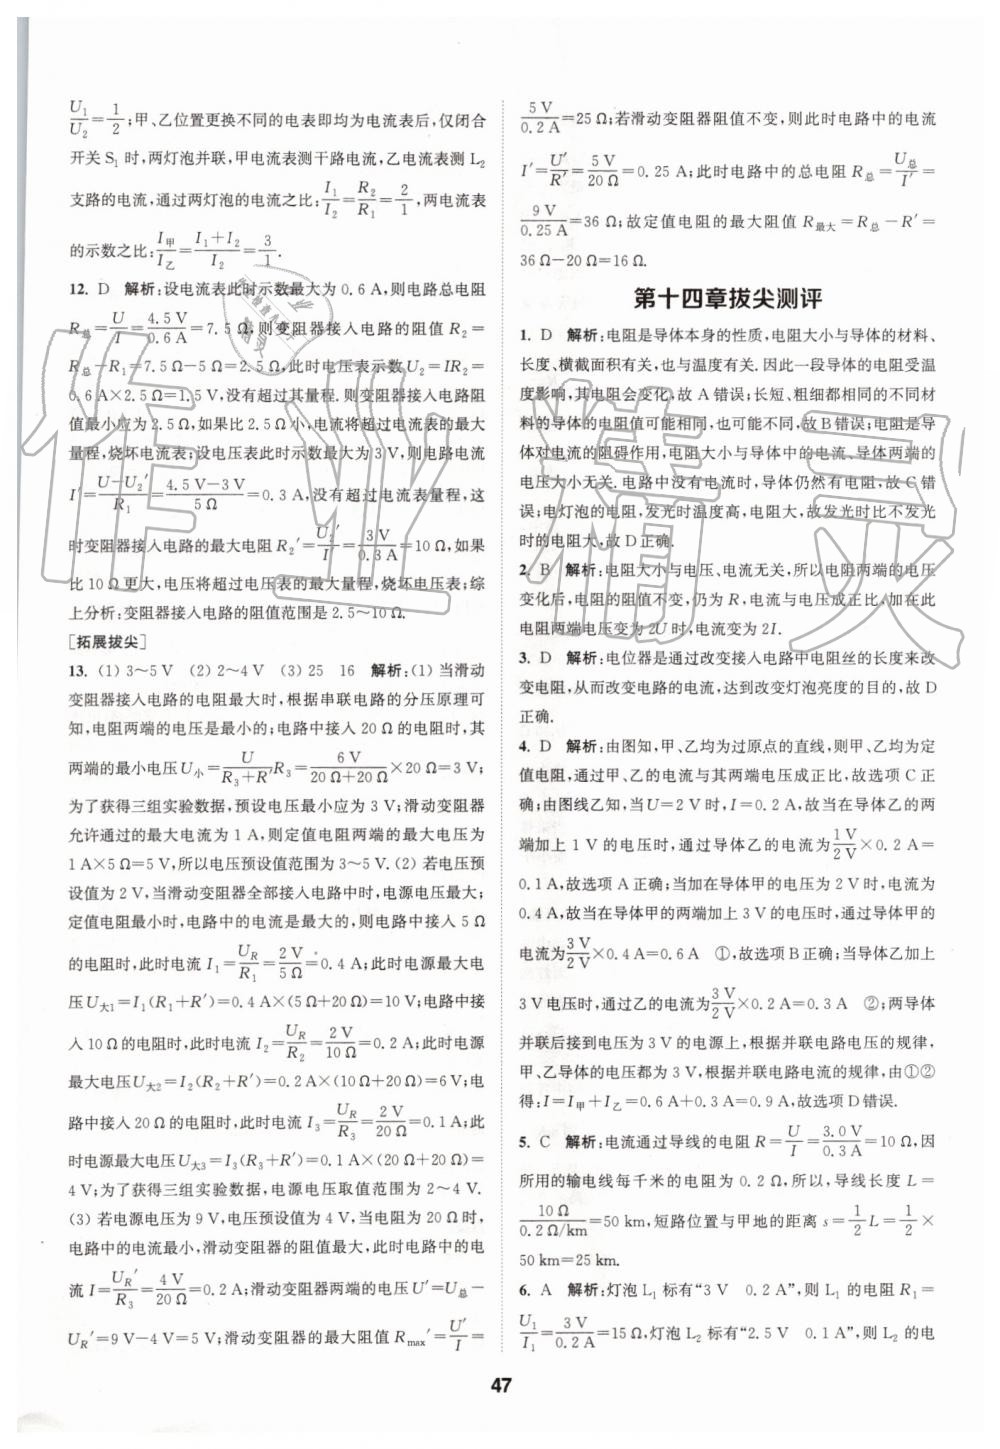 U₁/U₂=1/2;甲、乙位置更换不同的电表即均为电流表后,仅闭合
开关 S₁ 时,两灯泡并联,甲电流表测干路电流,乙电流表测 L₂
支路的电流,通过两灯泡的电流之比:I₁/I₂=R₂/R₁=2/1,两电流表
的示数之比:I甲/I乙=(I₁+I₂)/I₂=3/1.
12. D 解析:设电流表此时示数最大为 0.6 A,则电路总电阻
R总=U/I=4.5 V/0.6 A=7.5 Ω,则变阻器接入电路的阻值 R₂=
R总−R₁=7.5 Ω−5 Ω=2.5 Ω,此时电压表示数 U₂=IR₂=
0.6 A×2.5 Ω=1.5 V,没有超过其量程.则变阻器接入电路阻
值最小应为 2.5 Ω,如果比 2.5 Ω 小,电流将超过电流表的最大
量程,烧坏电流表;设电压表此时示数最大为 3 V,则电路电流
I′=(U−U₂′)/R₁=(4.5 V−3 V)/5 Ω=0.3 A,没有超过电流表量程,这
时变阻器接入电路的最大电阻 R₂′=U₂′/I′=3 V/0.3 A=10 Ω,如果
比 10 Ω 更大,电压将超过电压表的最大量程,烧坏电压表;综
上分析:变阻器接入电路的阻值范围是 2.5~10 Ω.
[拓展拔尖]
13. (1) 3~5 V (2) 2~4 V (3) 25 16 解析:(1) 当滑动
变阻器接入电路的电阻最大时,根据串联电路的分压原理可
知,电阻两端的电压是最小的;电路中接入 20 Ω 的电阻时,其
两端的最小电压 U小=U/(R₃+R′)R₃=6 V/(20 Ω+20 Ω)×20 Ω=3 V;
为了获得三组实验数据,预设电压最小应为 3 V;滑动变阻器
允许通过的最大电流为 1 A,则定值电阻两端的最大电压为
1 A×5 Ω=5 V,所以电压预设值范围为 3~5 V.(2) 若电压预
设值为 2 V,当滑动变阻器全部接入电路中时,电源电压最大;
定值电阻最小时,电路中的电流是最大的,则电路中接入 5 Ω
的电阻时,此时电流 I₁=U_R/R₁=2 V/5 Ω=0.4 A;此时电源最大电
压 U大1=I₁(R₁+R′)=0.4 A×(5 Ω+20 Ω)=10 V;电路中接
入 10 Ω 的电阻时,此时电流 I₂=U_R/R₂=2 V/10 Ω=0.2 A;此时电源
最大电压 U大2=I₂(R₂+R′)=0.2 A×(10 Ω+20 Ω)=6 V;电
路中接入 20 Ω 的电阻时,此时电流 I₃=U_R/R₃=2 V/20 Ω=0.1 A;此
时电源最大电压 U大3=I₃(R₃+R′)=0.1 A×(20 Ω+20 Ω)=
4 V;为了获得三组实验数据,电源电压取值范围为 2~4 V.
(3) 若电源电压为 9 V,电压预设值为 4 V,当电阻为 20 Ω 时,
电路中的电流最小,滑动变阻器的最大阻值最大,电路中的电
流 I=U_R′/R₃=4 V/20 Ω=0.2 A;滑动变阻器两端的电压 U′=U总−
U_R′=9 V−4 V=5 V;滑动变阻器的最大阻值 Rmax′=U′/I=
5 V/0.2 A=25 Ω;若滑动变阻器阻值不变,则此时电路中的电流
I′=U′/R′=5 V/20 Ω=0.25 A;此时电路中的总电阻 R总=U总/I′=
9 V/0.25 A=36 Ω;故定值电阻的最大阻值 R最大=R总−R′=
36 Ω−20 Ω=16 Ω.
第十四章拔尖测评
1. D 解析:电阻是导体本身的性质,电阻大小与导体的材料、
长度、横截面积有关,也与温度有关.因此一段导体的电阻受温
度影响,其电阻会变化,故 A 错误;长短、粗细都相同的不同材
料的导体的电阻值可能相同,也可能不同,故 B 错误;电阻是导
体对电流的阻碍作用,电阻大小与导体中的电流、导体两端的
电压大小无关.电阻中没有电流时,导体仍然有电阻,故 C 错
误;电灯泡的电阻,发光时温度高,电阻大,故发光时比不发光
时的电阻大,故 D 正确.
2. B 解析:电阻大小与电压、电流无关,所以电阻两端的电压
变化后,电阻的阻值不变,仍为 R,电流与电压成正比,加在此
电阻两端电压变为 2U 时,电流变为 2I.
3. D 解析:电位器是通过改变接入电路中电阻丝的长度来改
变电阻,从而改变电路的电流,达到改变灯泡亮度的目的,故 D
正确.
4. D 解析:由图知,甲、乙均为过原点的直线,则甲、乙均为定
值电阻,通过甲、乙的电流与其两端电压成正比,故选项 C 正
确;由图线乙知,当 U=2 V 时,I=0.2 A,当在导体乙的两
端加上 1 V 的电压时,通过导体乙的电流为1 V/2 V×0.2 A=
0.1 A,故选项 A 正确;当加在导体甲的电压为 2 V 时,电流为
0.4 A,故当在导体甲的两端加上 3 V 的电压时,通过导体甲的
电流为3 V/2 V×0.4 A=0.6 A ①,故选项 B 正确;当导体乙加上
3 V 电压时,通过乙的电流为3 V/2 V×0.2 A=0.3 A ②;两导体
并联后接到电压为 3 V 的电源上,根据并联电路电压的规律,
甲、乙导体的电压都为 3 V,根据并联电路电流的规律,由①②
得:I=I甲+I乙=0.6 A+0.3 A=0.9 A,故选项 D 错误.
5. C 解析:电流通过导线的电阻 R=U/I=3.0 V/0.3 A=10 Ω,因
所用的输电线每千米的电阻为 0.2 Ω,所以,导线长度 L=
10 Ω/0.2 Ω/km=50 km,短路位置与甲地的距离 s=1/2L=1/2×
50 km=25 km.
6. A 解析:灯泡 L₁ 标有“3 V 0.2 A”,则 L₁ 的电阻 R₁=
U₁/I₁=3 V/0.2 A=15 Ω,灯泡 L₂ 标有“2.5 V 0.1 A”,则 L₂ 的电
47
作业精灵